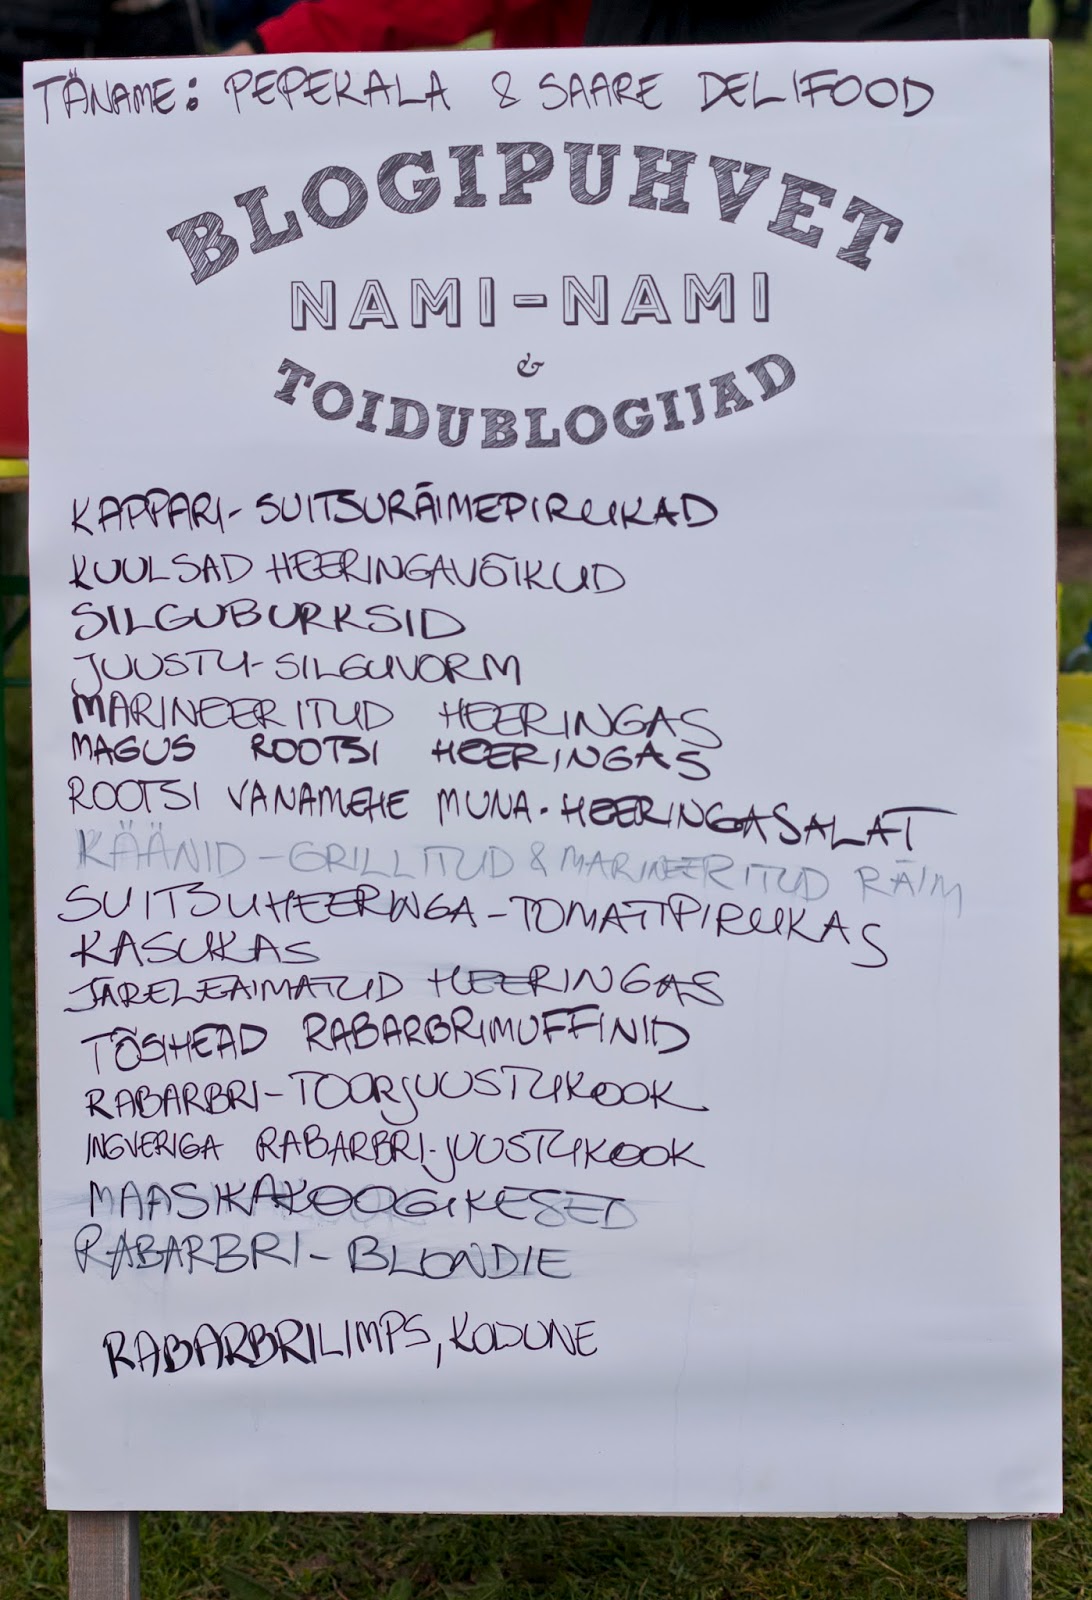 TÄNAME: PEPEKALA & SAARE DELIFOOD
BLOGIPUHVET
NAMI-NAMI
&
TOIDUBLOGIJAD
KAPPARI-SUITSURÄIMEPIRUKAD
KUULSAD HEERINGAVÕIKUD
SILGUBURKSID
JUUSTU-SILGUVORM
MARINEERITUD HEERINGAS
MAGUS ROOTSI HEERINGAS
ROOTSI VANAMEHE MUNA-HEERINGASALAT
KÄÄNID-GRILLITUD & MARINEERITUD RÄIM
SUITSUHEERINGA-TOMATIPIRUKAS
KASUKAS
JÄRELEAIMATUD HEERINGAS
TÕSIHEAD RABARBRIMUFFINID
RABARBRI-TOORJUUSTUKOOK
INGVERIGA RABARBRI-JUUSTUKOOK
MAASIKAKOOGIKESED
RABARBRI-BLONDIE
RABARBRILIMPS, KODUNE